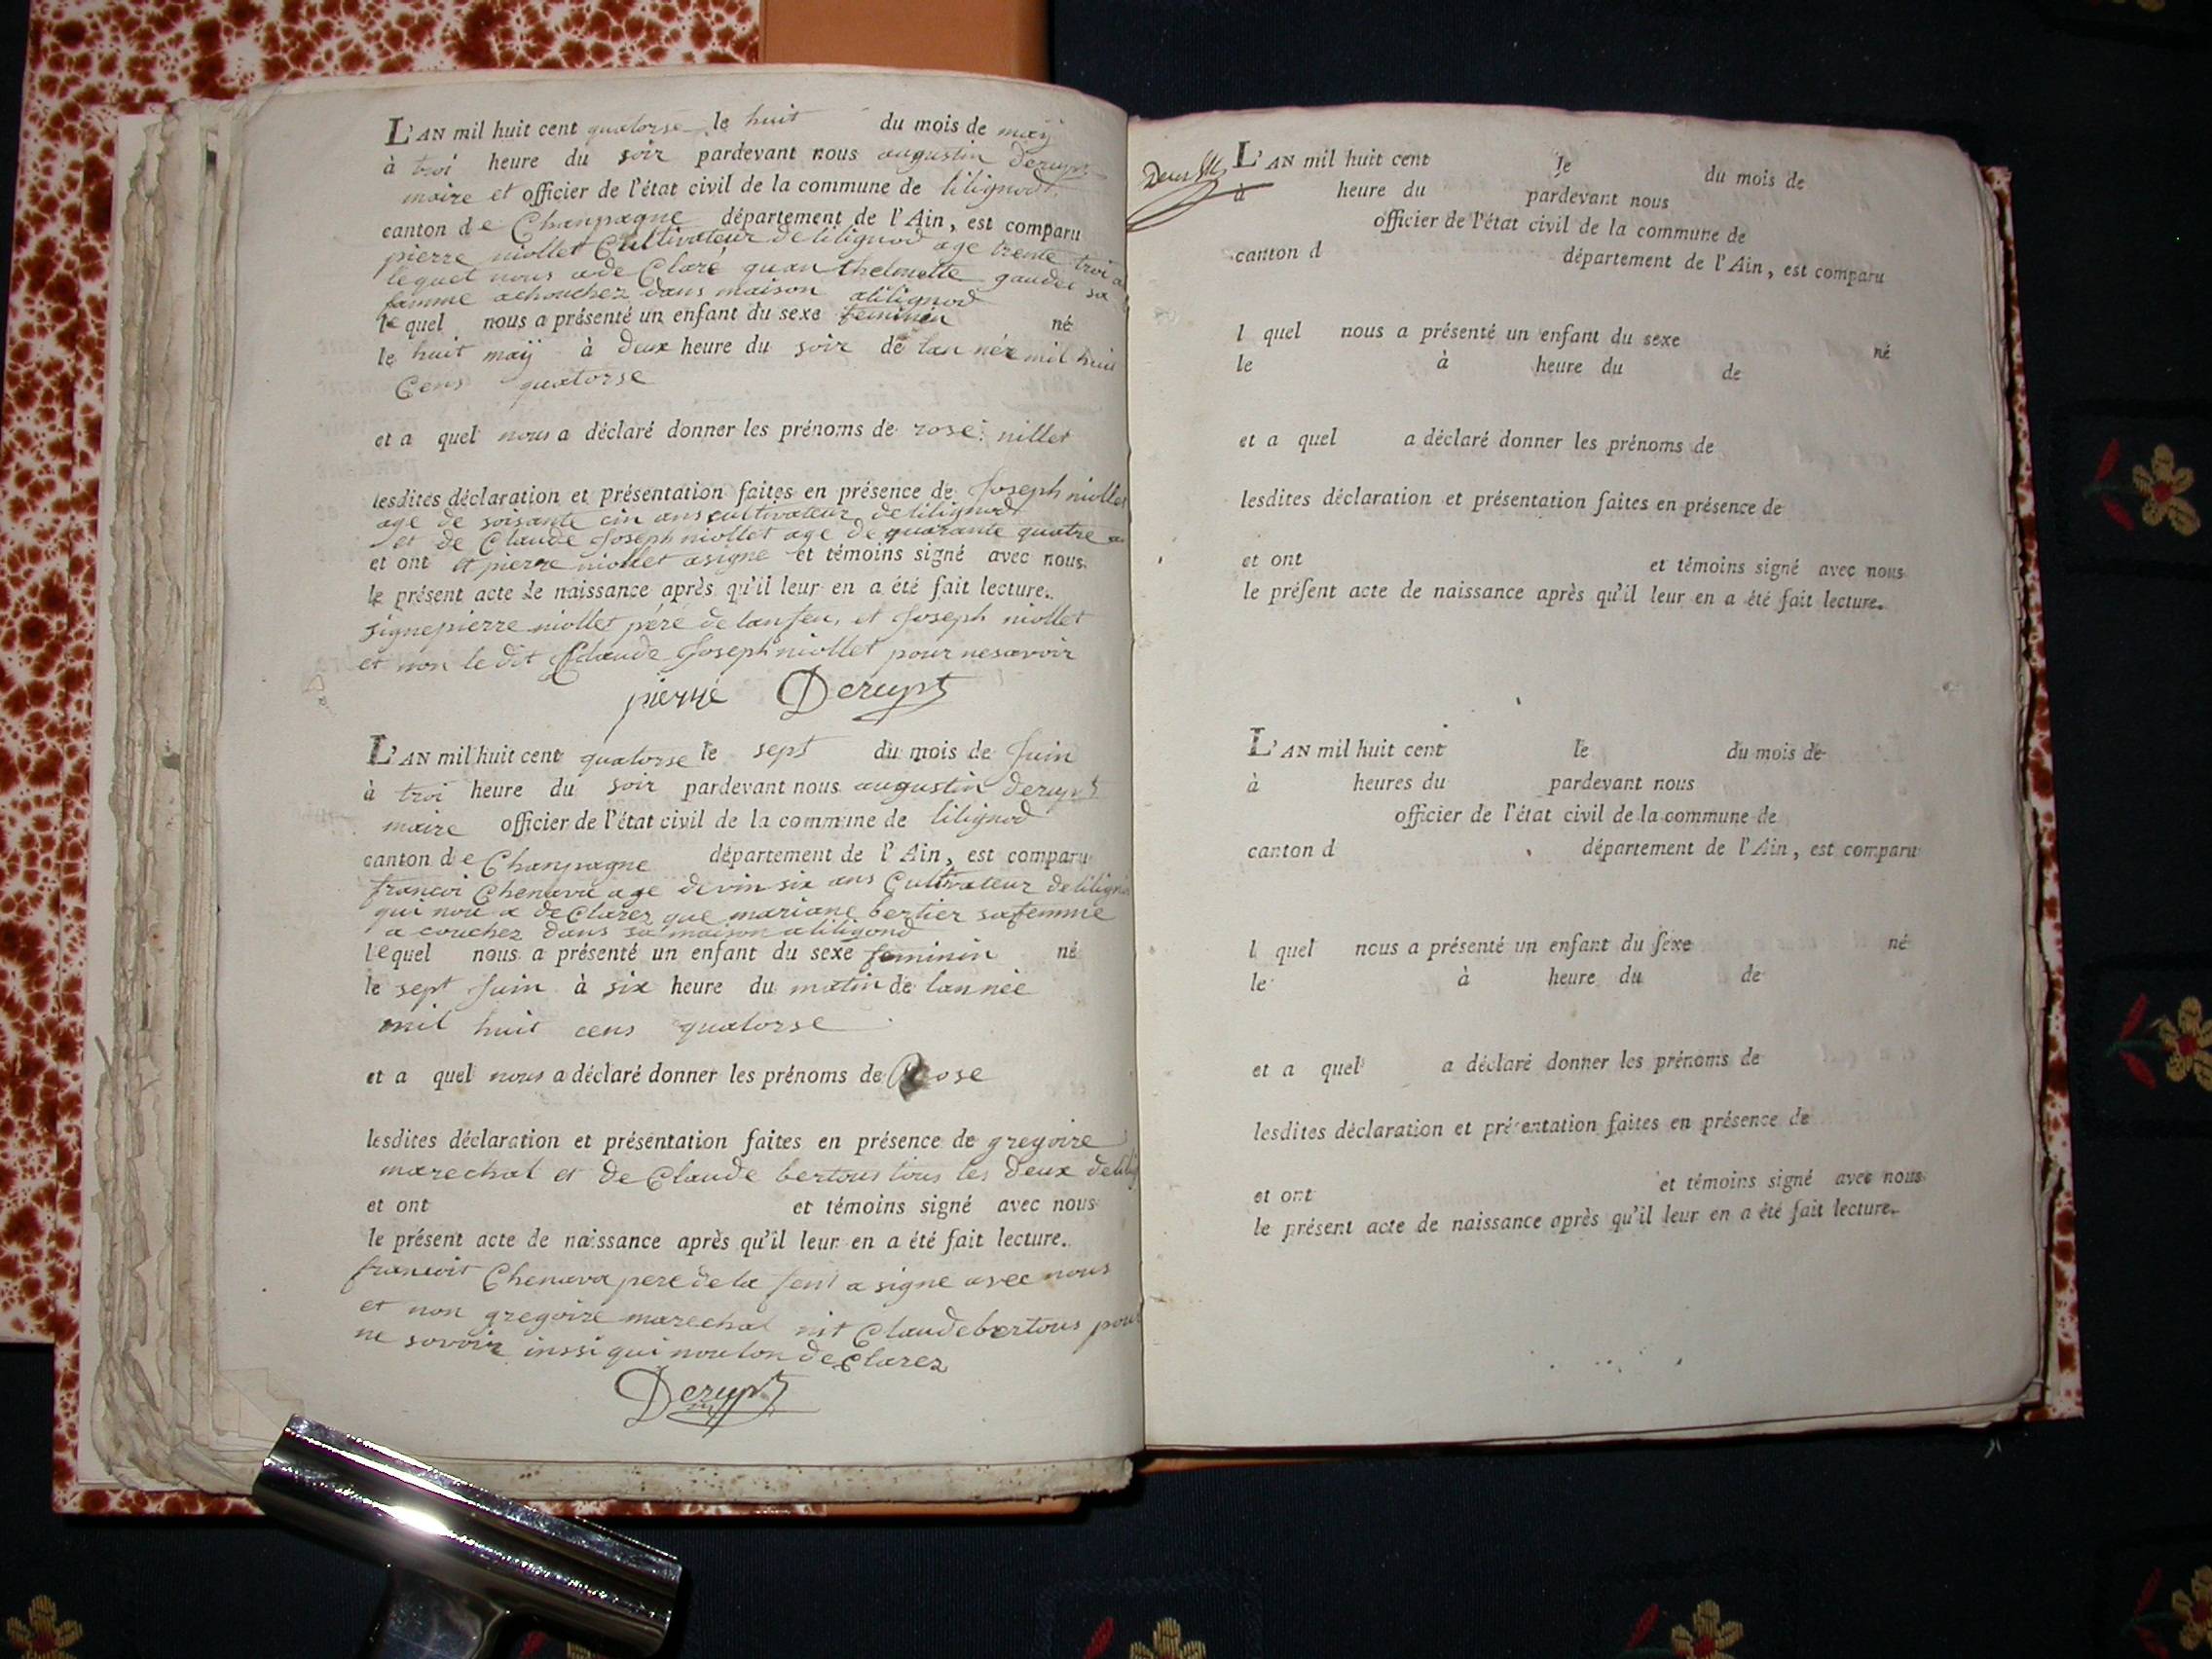 L'AN mil huit cent quatorse le huit du mois de maÿ
à troi heure du soir pardevant nous augustin Derupt
maire et officier de l'état civil de la commune de lilignod
canton de Chanpagne département de l'Ain, est comparu
pierre niollet Cultivateur de lilignod age trente troi
lequel nous a de Claré quan thelmette gaudet sa
famme achouchez dans maison alilignod
lequel nous a présenté un enfant du sexe feminin né
le huit maÿ à deux heure du soir de lan née mil huit
Cens quatorse
et a quel nous a déclaré donner les prénoms de rose nillet
lesdites déclaration et présentation faites en présence de Joseph niollet
age de soisante cin ans cultivateur de lilignod
et de Claude Joseph niollet age de quarante quatre
et ont et pierre niollet asigne et témoins signé avec nous
le présent acte de naissance après qu'il leur en a été fait lecture.
signe pierre niollet père de lanfen, et Joseph niollet
et non le dit Claude Joseph niollet pour nesavoir
pierre Derupt
L'AN mil huit cent quatorse le sept du mois de Juin
à troi heure du soir pardevant nous augustin derupt
maire officier de l'état civil de la commune de lilignod
canton de Chanpagne département de l'Ain, est comparu
francoi Chenava age de vin six ans Cultivateur de lilignod
qui nou a de Clarez que mariane bertier safemme
a couchez dans sa maison a liligond
lequel nous a présenté un enfant du sexe feminin né
le sept Juin à six heure du matin de lannée
mil huit cens quatorse
et a quel nous a déclaré donner les prénoms de Rose
lesdites déclaration et présentation faites en présence de gregoire
marechal et de Claude bertous tous les deux de
et ont et témoins signé avec nous
le présent acte de naissance après qu'il leur en a été fait lecture.
francoit Chenava pere de la fent a signe avec nous
et non gregoire marechal nit Claude bertous pour
ne sovoir inssi qui nou lon de Clarez
Derupt
L'AN mil huit cent le du mois de
à heure du pardevant nous
officier de l'état civil de la commune de
canton d département de l'Ain, est comparu
l quel nous a présenté un enfant du sexe né
le à heure du de
et a quel a déclaré donner les prénoms de
lesdites déclaration et présentation faites en présence de
et ont et témoins signé avec nous
le présent acte de naissance après qu'il leur en a été fait lecture.
L'AN mil huit cent le du mois de
à heures du pardevant nous
officier de l'état civil de la commune de
canton d département de l'Ain, est comparu
l quel nous a présenté un enfant du sexe né
le à heure du de
et a quel a déclaré donner les prénoms de
lesdites déclaration et présentation faites en présence de
et ont et témoins signé avec nous
le présent acte de naissance après qu'il leur en a été fait lecture.